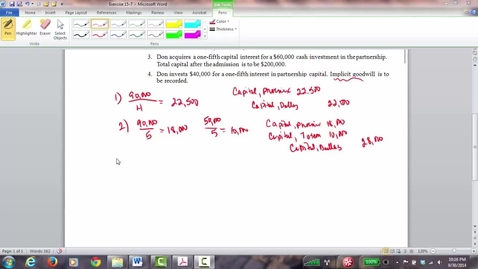 Exercise 15-7 - Microsoft Word
Pen
Highlighter
Eraser
Select
Color
Thickness
Pens
3. Don acquires a one-fifth capital interest for a $60,000 cash investment in the partnership.
Total capital after the admission is to be $200,000.
4. Don invests $40,000 for a one-fifth interest in partnership capital. Implicit goodwill is to
be recorded.
1) 90,000 / 4 = 22,500
Capital, Phoenix 22,500
Capital, Dallas
2) 90,000 / 5 = 18,000 50,000 / 5 = 10,000
Capital, Phoenix 18,000
Capital, Tucson 10,000
Capital, Dallas 28,000
Page: 1 of 1
Words: 162
120%
100%
10:26 PM
9/30/2014